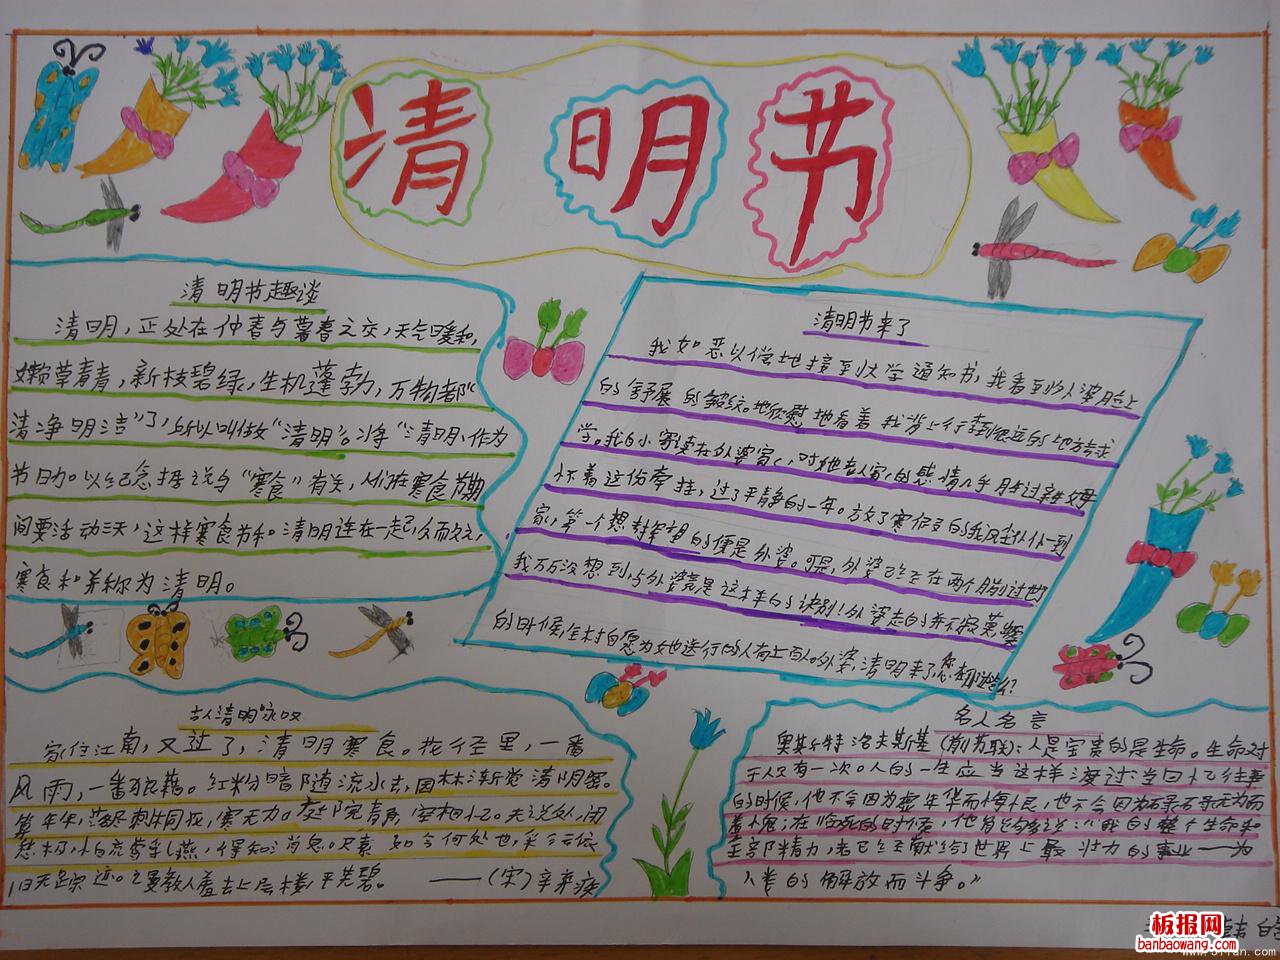 清明节
清明节趣谈
清明，正处在仲春与暮春之交，天气暖和，
嫩草青青，新枝碧绿，生机蓬勃，万物都“
清净明洁”了，所以叫做“清明”。将“清明”作为
节日加以纪念据说与“寒食”有关，人们在寒食节期
间要活动三天，这样寒食节和清明连在一起，久而久之，
寒食和并称为清明。
清明节来了
我如愿以偿地接到大学通知书，我看到外婆脸上
的舒展的皱纹。地欣慰地看着我背上行李到很远的地方去求
学。我自小寄读在外婆家，对她老人家的感情几乎胜过亲母
怀着这份牵挂，过了平静的一年。放了寒假的我风尘仆仆到
家，第一个想探望的便是外婆。可是，外婆已经在两个月前过世
我万万没想到，与外婆竟是这样的诀别！外婆走的并不寂寞，
的时候全村自愿为她送行的人有上百人。外婆，清明来了，您
古人清明咏叹
家住江南，又过了，清明寒食。花径里，一番
风雨，一番狼藉。红粉暗随流水去，园林渐觉清阴密。
算年年，落尽刺桐花，寒无力。庭院静，空相忆。无说处，闲
愁极，怕流莺乳燕，得知消息。尺素如今何处也，彩云依
旧无踪迹。谩教人羞去上层楼，平芜碧。——（宋）辛弃疾
名人名言
奥斯特洛夫斯基（前苏联）：人最宝贵的是生命。生命对
于人只有一次。人的一生应当这样渡过：当回忆往事
的时候，他不会因为虚年华而悔恨，也不会因为碌碌无为而
羞愧；在临死的时候，他能够说：“我的整个生命和
全部精力，都已经贡献给了世界上最壮力的事业——为
人类的解放而斗争。”
板报网
banbaowang.com